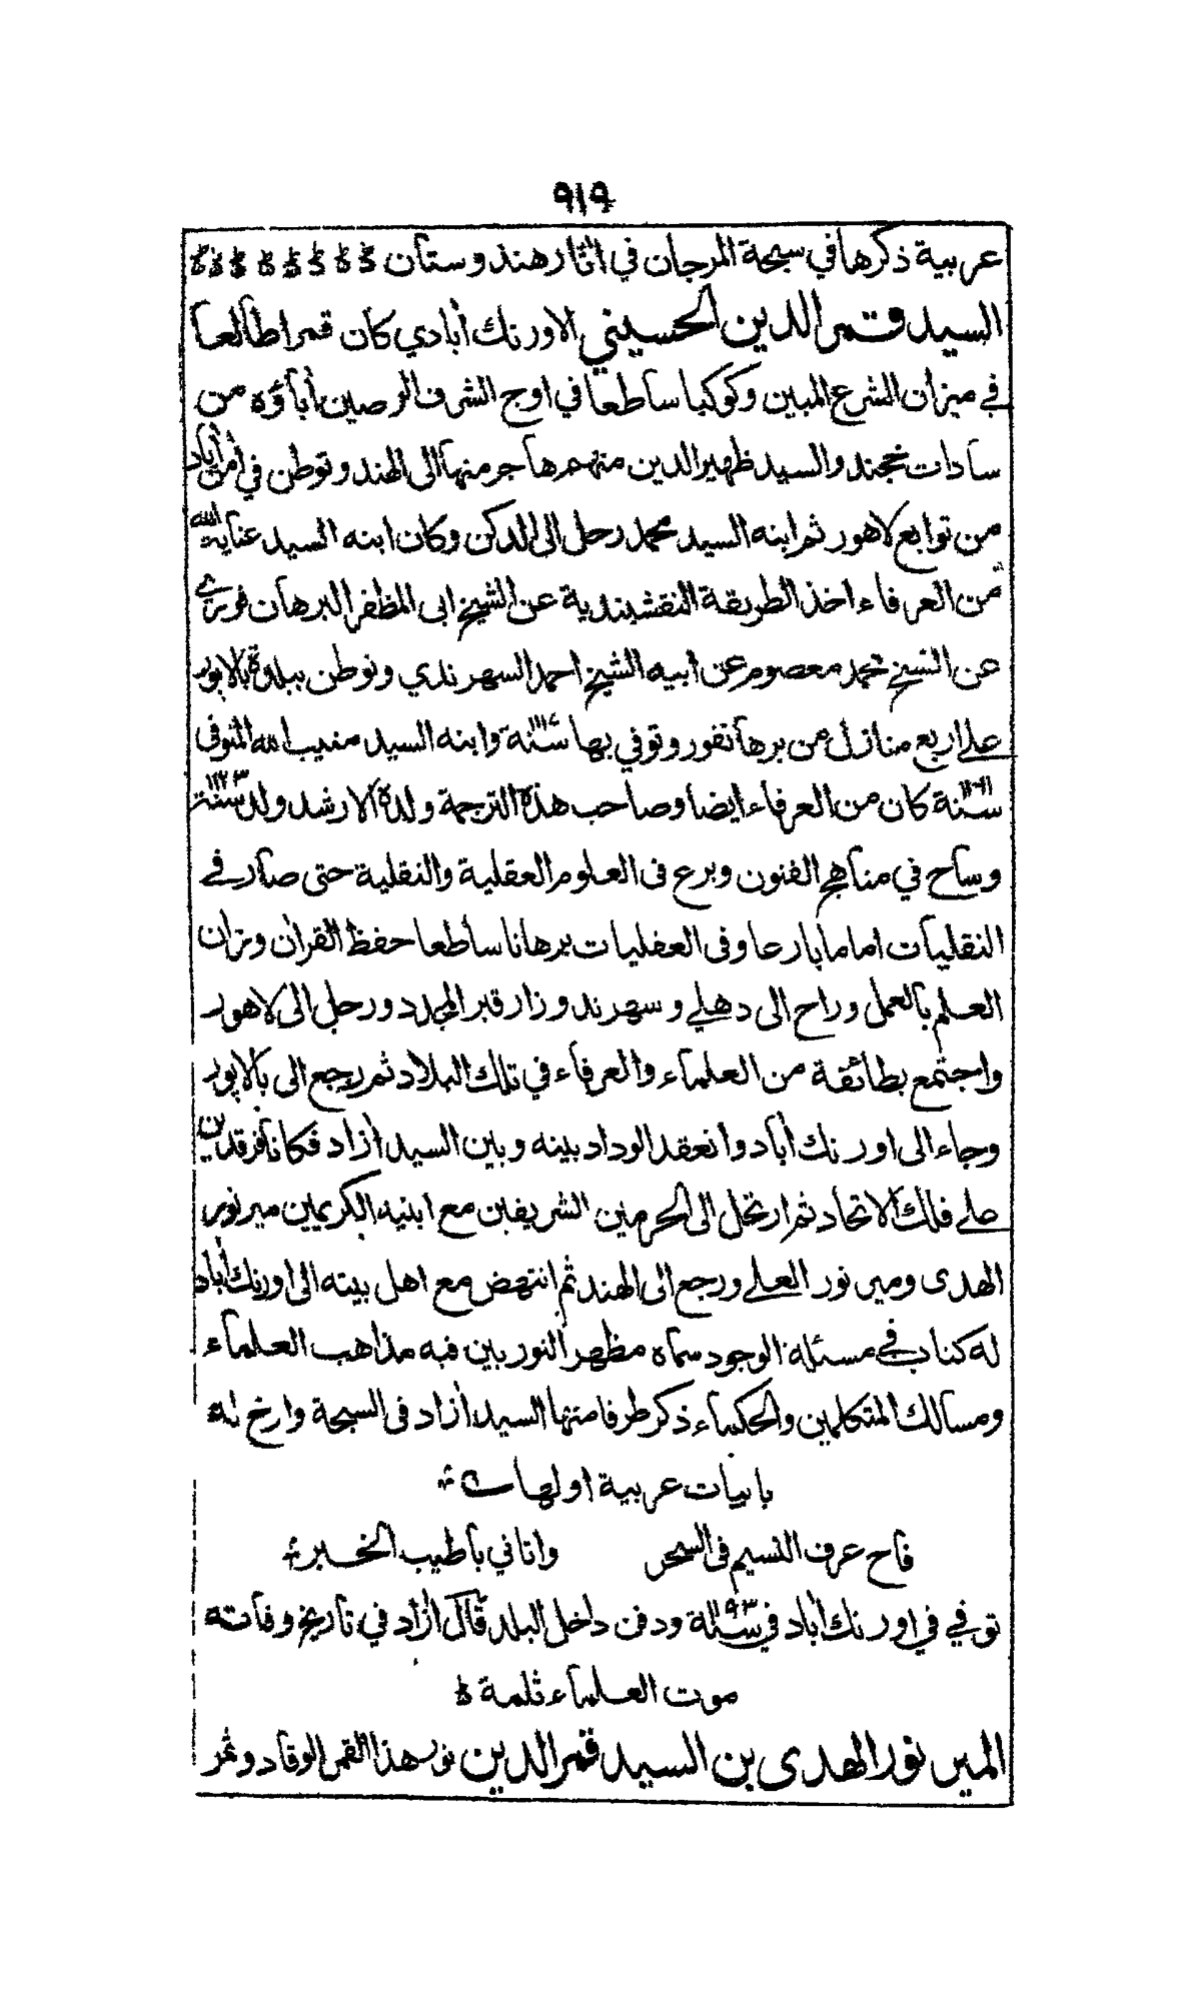 ٩١٩
عربية ذكرها في سبحة المرجان في اثار هندوستان
السيد قمر الدين الحسيني الاورنك أبادي كان قمرا طالعا
في ميزان الشرع المبين وكوكبا ساطعا في اوج الشرف الرصين أباؤه من
سادات خجند والسيد ظهير الدين منهم هاجر منها الى الهند وتوطن في امن أباد
من توابع لاهور ثم ابنه السيد محمد رحل الى الدكن وكان ابنه السيد عناية الله
من العرفاء اخذ الطريقة النقشبندية عن الشيخ ابى المظفر البرهان فوري
عن الشيخ محمد معصوم عن ابيه الشيخ احمد السهرندي وتوطن ببلدة بالابور
على اربع منازل من برهانفور وتوفي بها سنة وابنه السيد منيب الله المتوفى
سنة ١١٦١ كان من العرفاء ايضا وصاحب هذه الترجمة ولده الارشد ولد سنة ١١٢٣
وساح في مناهج الفنون وبرع فى العلوم العقلية والنقلية حتى صار في
النقليات اماما بارعا وفى العقليات برهانا ساطعا حفظ القران وزان
العلم بالعمل وراح الى دهلي وسهرند وزار قبر المجدد ورحل الى لاهور
واجتمع بطائفة من العلماء والعرفاء في تلك البلاد ثم رجع الى بالابور
وجاء الى اورنك أباد وانعقد الوداد بينه وبين السيد أزاد فكانا فرقدين
على فلك الاتحاد ثم ارتحل الى الحرمين الشريفين مع ابنيه الكريمين مير نور
الهدى ومير نور العلي ورجع الى الهند ثم انتهض مع اهل بيته الى اورنك أباد
له كتاب في مسئلة الوجود سماه مظهر النور بين فيه مذاهب العلماء
ومسالك المتكلمين والحكماء ذكر طرفا منها السيد أزاد فى السبحة وارخ له
بابيات عربية اولها
فاح عرف النسيم فى السحر واتاني باطيب الخبر
توفي في اورنك أباد في سنة ١١٩٣ ودفن داخل البلد قال أزاد في تاريخ وفاته
موت العلماء ثلمة
المير نور الهدى بن السيد قمر الدين نور هذا القمر الوقاد وثمر